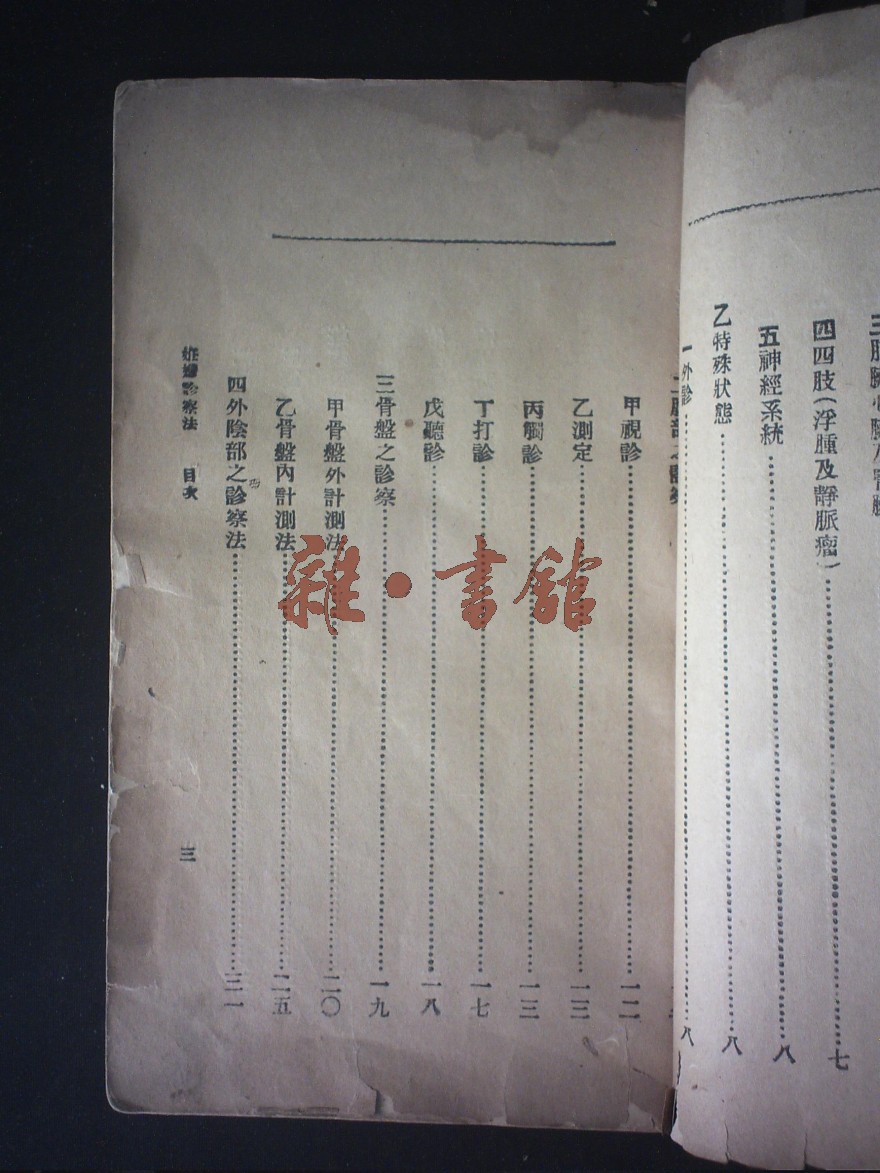 四四肢(浮腫及靜脈瘤)……七
五神經系統……八
乙特殊狀態……八
一外診……八
二腹部之診察
甲視診……一二
乙測定……一三
丙觸診……一三
丁打診……一七
戊聽診……一八
三骨盤之診察……一九
甲骨盤外計測法……二〇
乙骨盤內計測法……二五
四外陰部之診察法……三一
妊婦診察法 目次 三
雜·書館